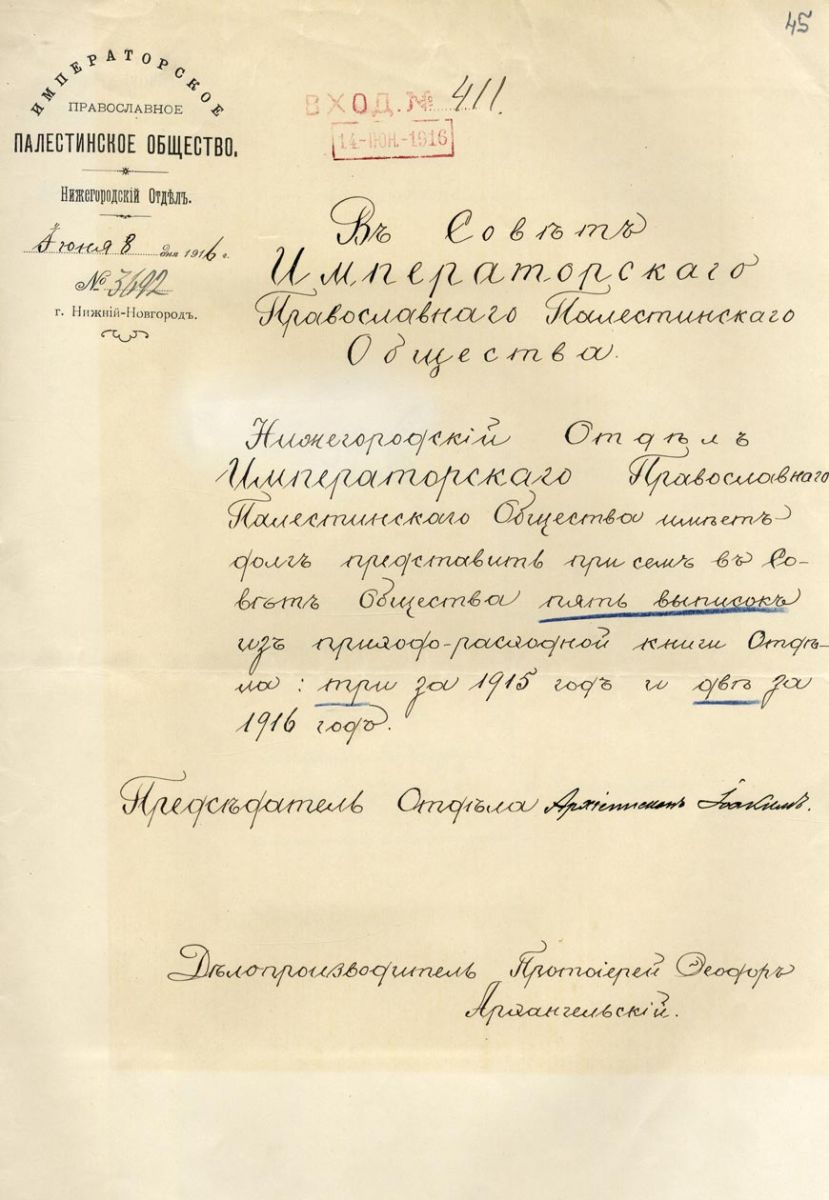 45
ИМПЕРАТОРСКОЕ
ПРАВОСЛАВНОЕ
ПАЛЕСТИНСКОЕ ОБЩЕСТВО.
Нижегородскій Отдѣлъ.
Іюня 8 дня 1916 г.
№ 3692
г. Нижній-Новгородъ.
ВХОД. № 411.
14-ІЮН.-1916
Въ Совѣтъ
Императорскаго
Православнаго Палестинскаго
Общества.
Нижегородскій Отдѣлъ
Императорскаго Православнаго
Палестинскаго Общества имѣетъ
долгъ представить при семъ въ Со-
вѣтъ Общества пять выписокъ
изъ приходо-расходной книги Отдѣ-
ла: три за 1915 годъ и двѣ за
1916 годъ.
Предсѣдатель Отдѣла Архіепископъ Іоакимъ.
Дѣлопроизводитель Протоіерей Ѳеодоръ
Архангельскій.